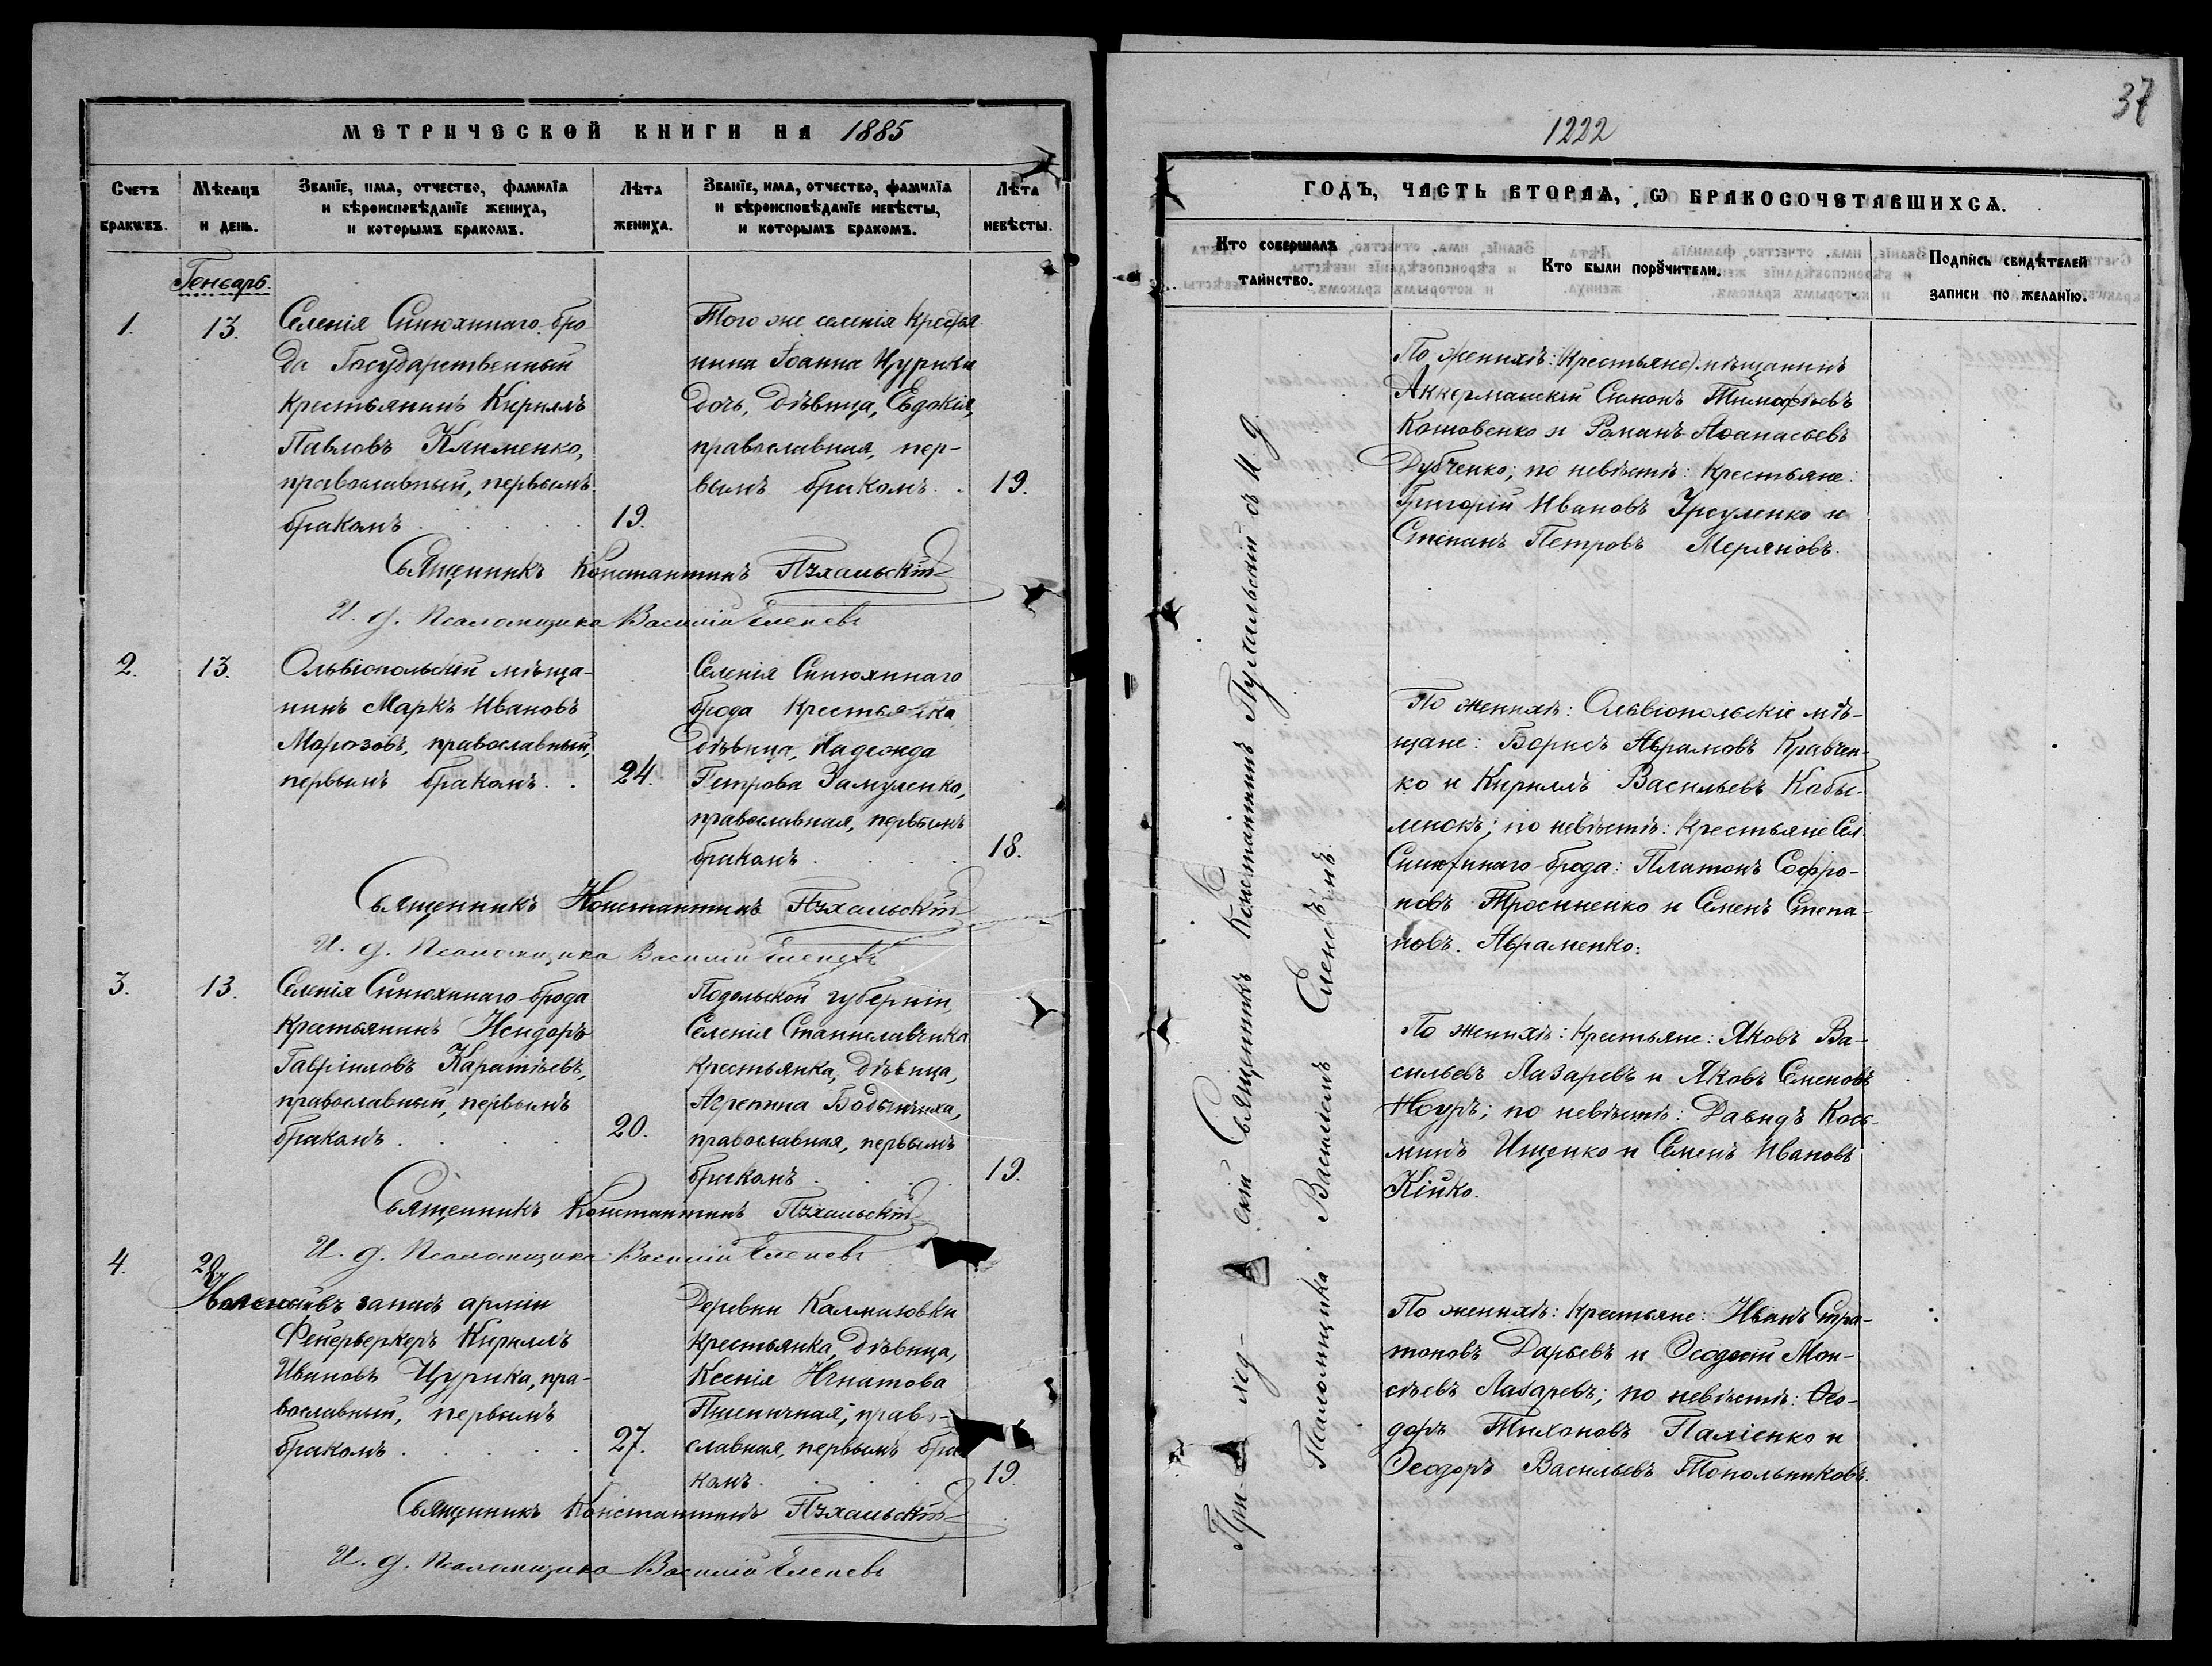 МЕТРИЧЕСКОЙ КНИГИ НА 1885
Счетъ браковъ.
Мѣсяцъ и день.
Званїе, имя, отчество, фамилїя и вѣроисповѣданїе жениха, и которымъ бракомъ.
Лѣта жениха.
Званїе, имя, отчество, фамилїя и вѣроисповѣданїе невѣсты, и которымъ бракомъ.
Лѣта невѣсты.
Генварь.
1.
13.
Селенія Синюхинаго-бро
да Государственный
крестьянинъ Кириллъ
Павловъ Клименко,
православный, первымъ
бракомъ
19.
Того же селенія крестья
нина Іоанна Цурики
дочь, дѣвица, Евдокія,
православная, пер-
вымъ бракомъ.
19.
Священникъ Константинъ Пухальскій
И. д. Псаломщика Василій Еленевъ
2.
13.
Ольвіопольскій мѣща-
нинъ Маркъ Ивановъ
Морозовъ, православный,
первымъ бракомъ.
24.
Селенія Синюхинаго
брода крестьянка
дѣвица, Надежда
Петрова Замуленко,
православная, первымъ
бракомъ
18.
Священникъ Константинъ Пухальскій
И. д. Псаломщика Василій Еленевъ
3.
13.
Селенія Синюхинаго-брода
крестьянинъ Исидоръ
Гавріиловъ Каратѣевъ,
православный, первымъ
бракомъ.
20.
Подольской губерніи,
Селенія Станиславчика
крестьянка, дѣвица,
Агрепина
православная, первымъ
бракомъ
19.
Священникъ Константинъ Пухальскій
И. д. Псаломщика Василій Еленевъ
4.
въ запасъ арміи
Фейерверкеръ Кириллъ
Ивановъ Цурика, пра-
вославный, первымъ
бракомъ.
27.
Деревни Калмазовки
крестьянка, дѣвица,
Ксенія Игнатова
Пшеничная, право-
славная, первымъ бра
комъ.
19
Священникъ Константинъ Пухальскій
И. д. Псаломщика Василій Еленевъ
37
1222
ГОДЪ, ЧАСТЬ ВТОРАЯ, Ѡ БРАКОСОЧЕТАВШИХСЯ.
Кто совершалъ таинство.
Кто были порꙋчители.
Подпись свидѣтелей записи по желанїю.
Священникъ Константинъ Пухальскій съ И. д.
Псаломщика Василіемъ Еленевымъ.
По женихѣ: крестьяне: мѣщанинъ
Аккерманскій Симонъ Тимоѳѣевъ
Котовенко и Романъ Аѳанасьевъ
Дубченко; по невѣстѣ: крестьяне:
Григорій Ивановъ Урсуленко и
Степанъ Петровъ Меряновъ.
По женихѣ: Ольвіопольскіе мѣ-
щане: Борисъ Абрамовъ Кравчен-
ко и Кириллъ Васильевъ Кобы-
ленскъ; по невѣстѣ: крестьяне Сел.
Синюхинаго-брода: Платонъ Софро-
новъ Тросиненко и Семенъ Степа-
новъ Авраменко.
По женихѣ: крестьяне: Яковъ Ва-
сильевъ Лазаревъ и Яковъ Семеновъ
по невѣстѣ: Давидъ Козь-
минъ Ищенко и Семенъ Ивановъ
Кійко.
По женихѣ: крестьяне: Иванъ Стра-
тоновъ Дарьевъ и Ѳеодосій Мои-
сѣевъ Лазаревъ; по невѣстѣ: Ѳео-
доръ Тихоновъ Паліенко и
Ѳеодоръ Васильевъ Топольниковъ.